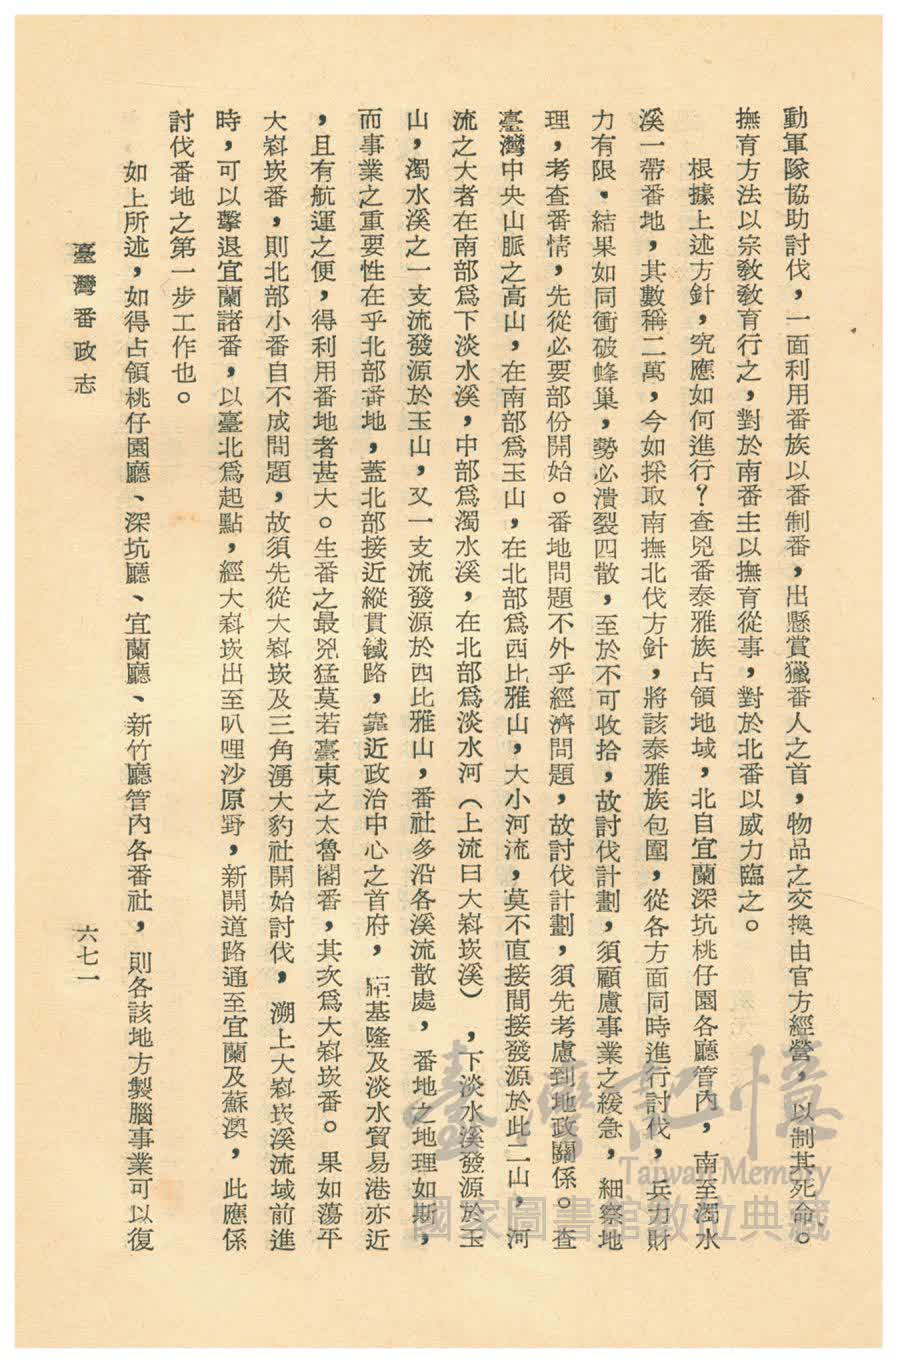 動軍隊協助討伐，一面利用番族以番制番，出懸賞獵番人之首，物品之交換由官方經營，以制其死命。
撫育方法以宗教教育行之，對於南番主以撫育從事，對於北番以威力臨之。
根據上述方針，究應如何進行？查兇番泰雅族占領地域，北自宜蘭深坑桃仔園各廳管內，南至濁水
溪一帶番地，其數稱二萬，今如採取南撫北伐方針，將該泰雅族包圍，從各方面同時進行討伐，兵力財
力有限。結果如同衝破蜂巢，勢必潰裂四散，至於不可收拾，故討伐計劃，須顧慮事業之緩急，細察地
理，考查番情，先從必要部份開始。番地問題不外乎經濟問題，故討伐計劃，須先考慮到地政關係。查
臺灣中央山脈之高山，在南部爲玉山，在北部爲西比雅山，大小河流，莫不直接間接發源於此二山，河
流之大者在南部爲下淡水溪，中部爲濁水溪，在北部爲淡水河（上流曰大嵙崁溪），下淡水溪發源於玉
山，濁水溪之一支流發源於玉山，又一支流發源於西比雅山，番社多沿各溪流散處，番地之地理如斯，
而事業之重要性在乎北部番地，蓋北部接近縱貫鐵路，靠近政治中心之首府，距基隆及淡水貿易港亦近
，且有航運之便，得利用番地者甚大。生番之最兇猛莫若臺東之太魯閣番，其次爲大嵙崁番。果如蕩平
大嵙崁番，則北部小番自不成問題，故須先從大嵙崁及三角湧大豹社開始討伐，溯上大嵙崁溪流域前進
時，可以擊退宜蘭諸番，以臺北爲起點，經大嵙崁出至叭哩沙原野，新開道路通至宜蘭及蘇澳，此應係
討伐番地之第一步工作也。
如上所述，如得占領桃仔園廳、深坑廳、宜蘭廳、新竹廳管內各番社，則各該地方製腦事業可以復
臺灣番政志
六七一
臺灣記憶
Taiwan Memory
國家圖書館數位典藏